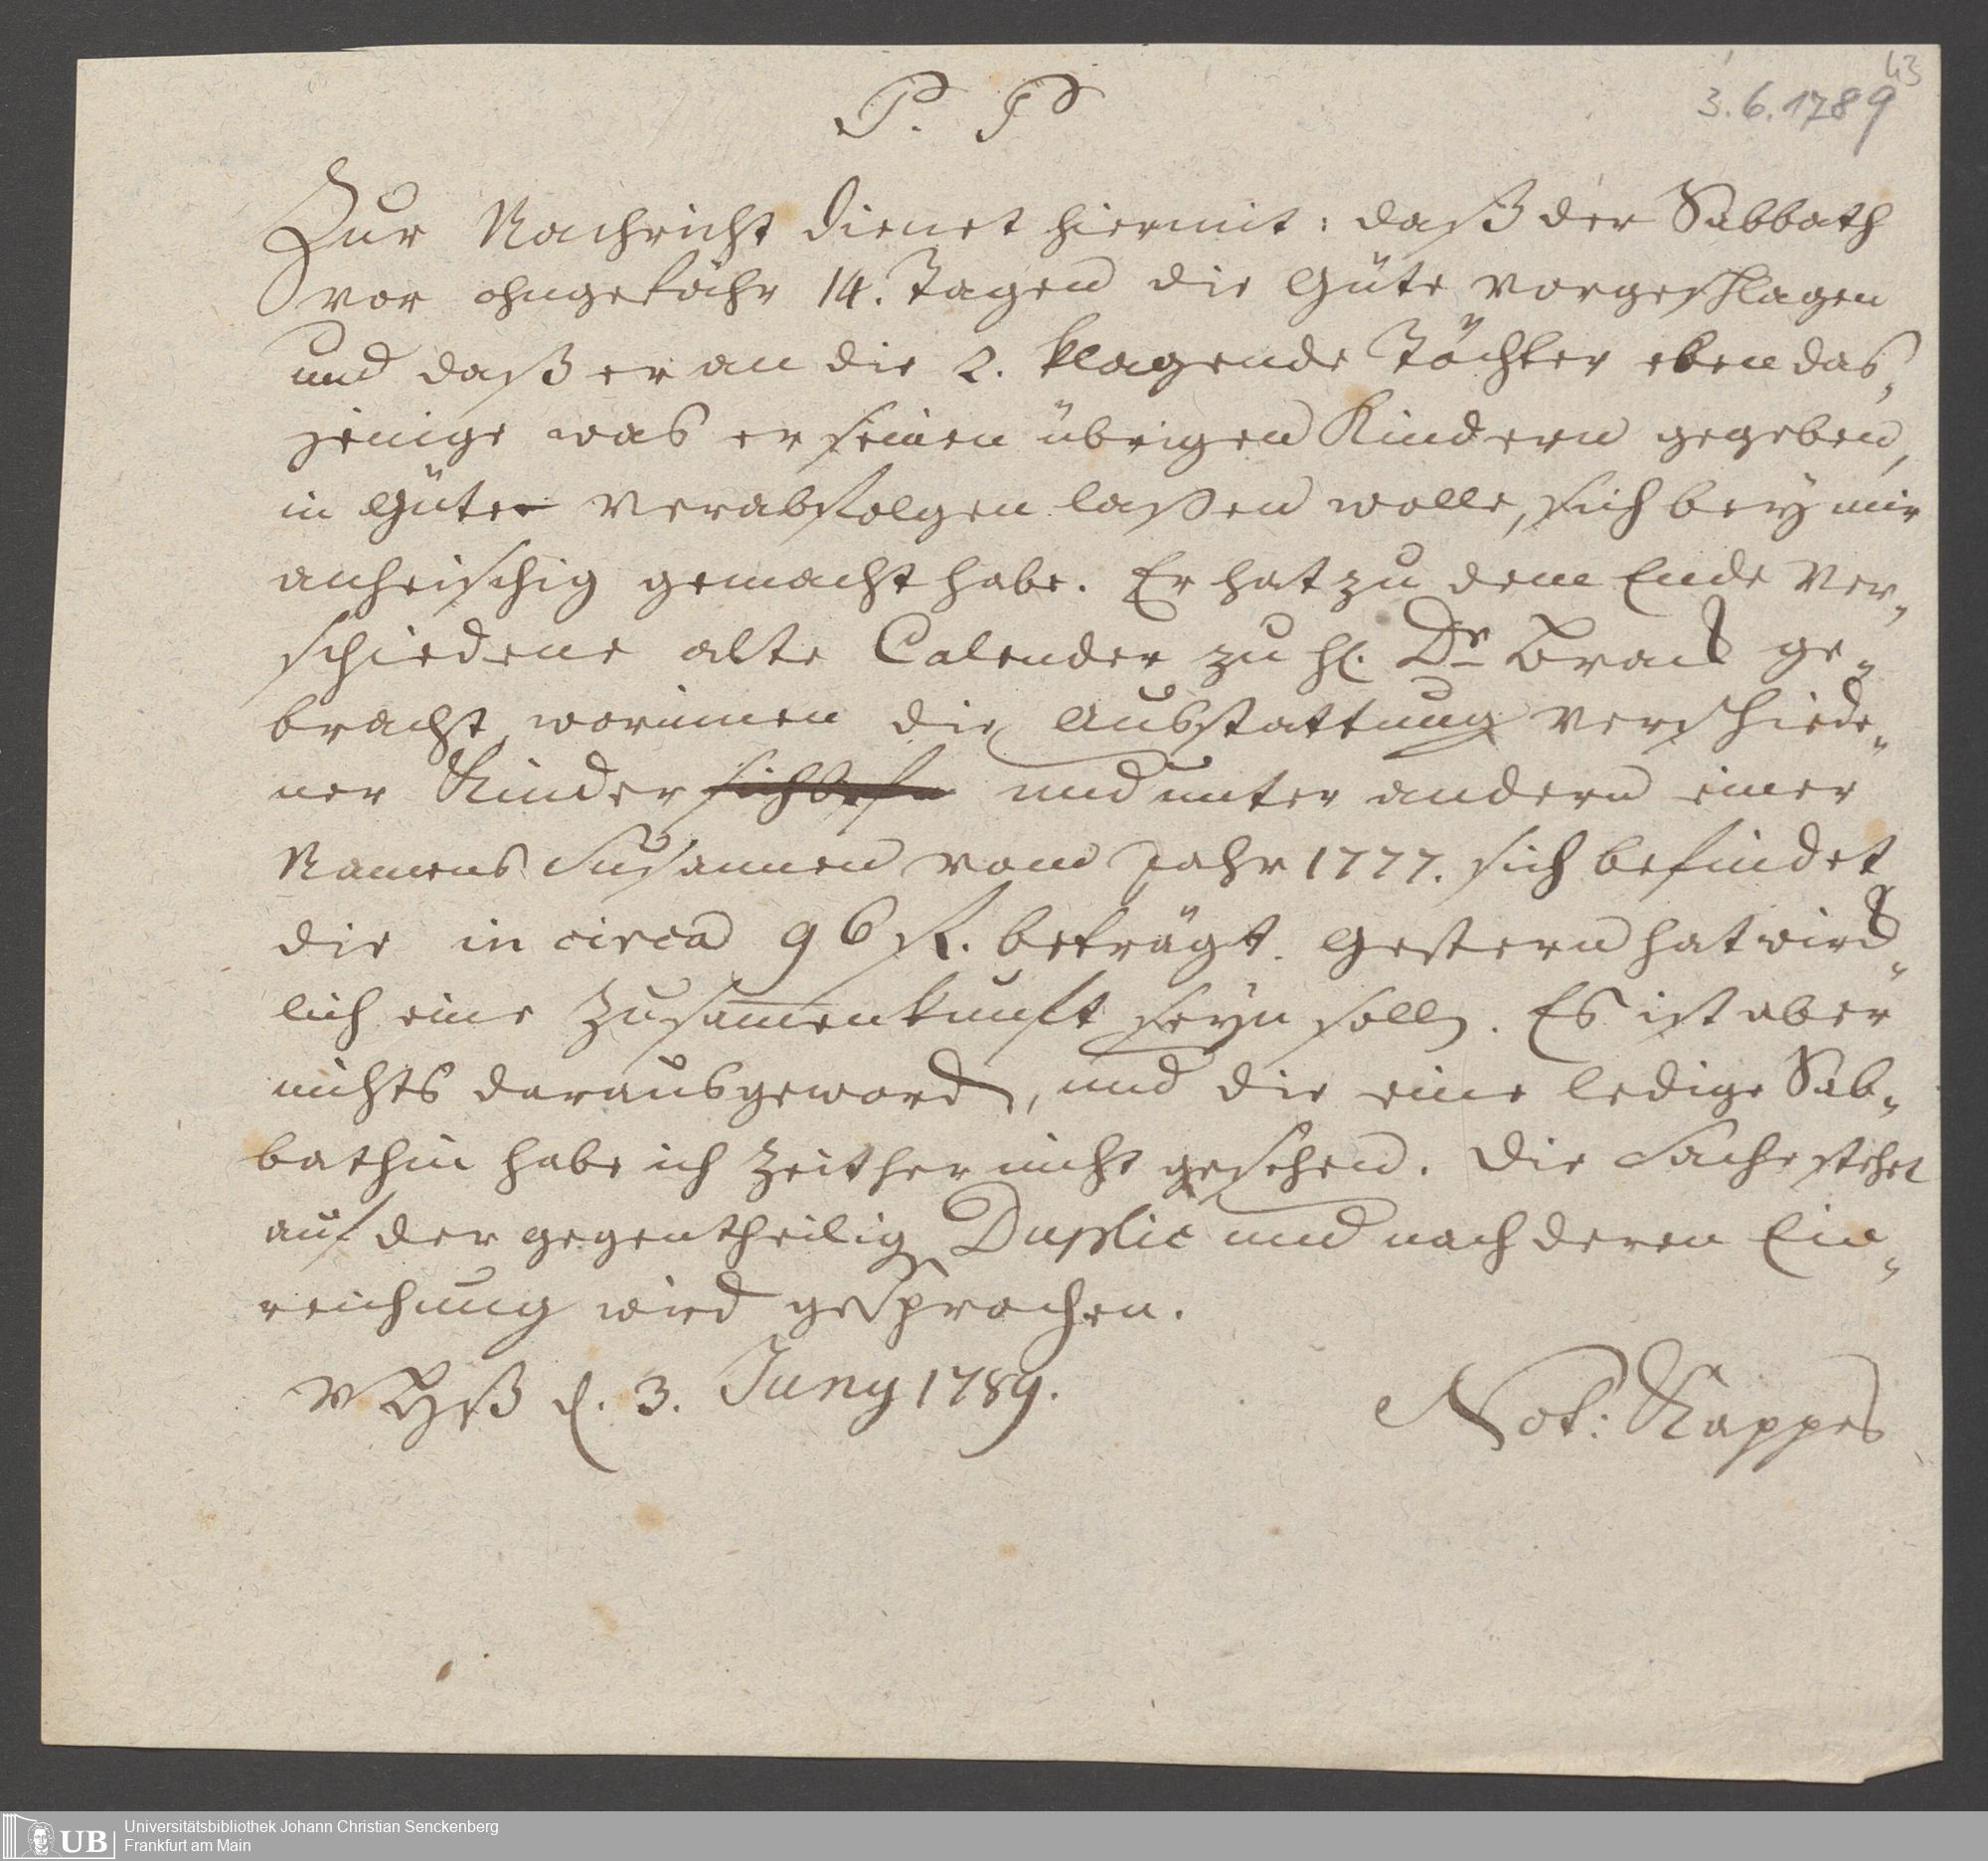 43
3.6.1789
P. P
Zur Nachricht dienet hiermit: daß der Sabbath
vor ohngefähr 14. Tagen die Güte vorgeschlagen
und daß er an die 2. klagende Töchter eben das„
jenige was er seinen übrigen Kindern gegeben,
in Güte verabfolgen laßen wolle, sich bey mir
anheischig gemacht habe. Er hat zu dem Ende ver„
schiedene alte Calender zu H. Dr ge„
bracht, worinnen die Ausstattung verschiede„
ner Kinder und unter andern einer
Namens Susannen vom Jahr 1777. sich befindet
die in circa 96 fl. beträgt. Gestern hat würk„
lich eine Zusamenkunft seyn solln. Es ist aber
nichts daraus geworden, und die eine ledige Sab„
bathin habe ich zeither nicht gesehen. Die Sache stehet
auf der gegentheilig Duplic und nach deren Ein„
reichung wird gesprochen.
d. 3. Juny 1789.
Not: Kappes
UB
Universitätsbibliothek Johann Christian Senckenberg
Frankfurt am Main